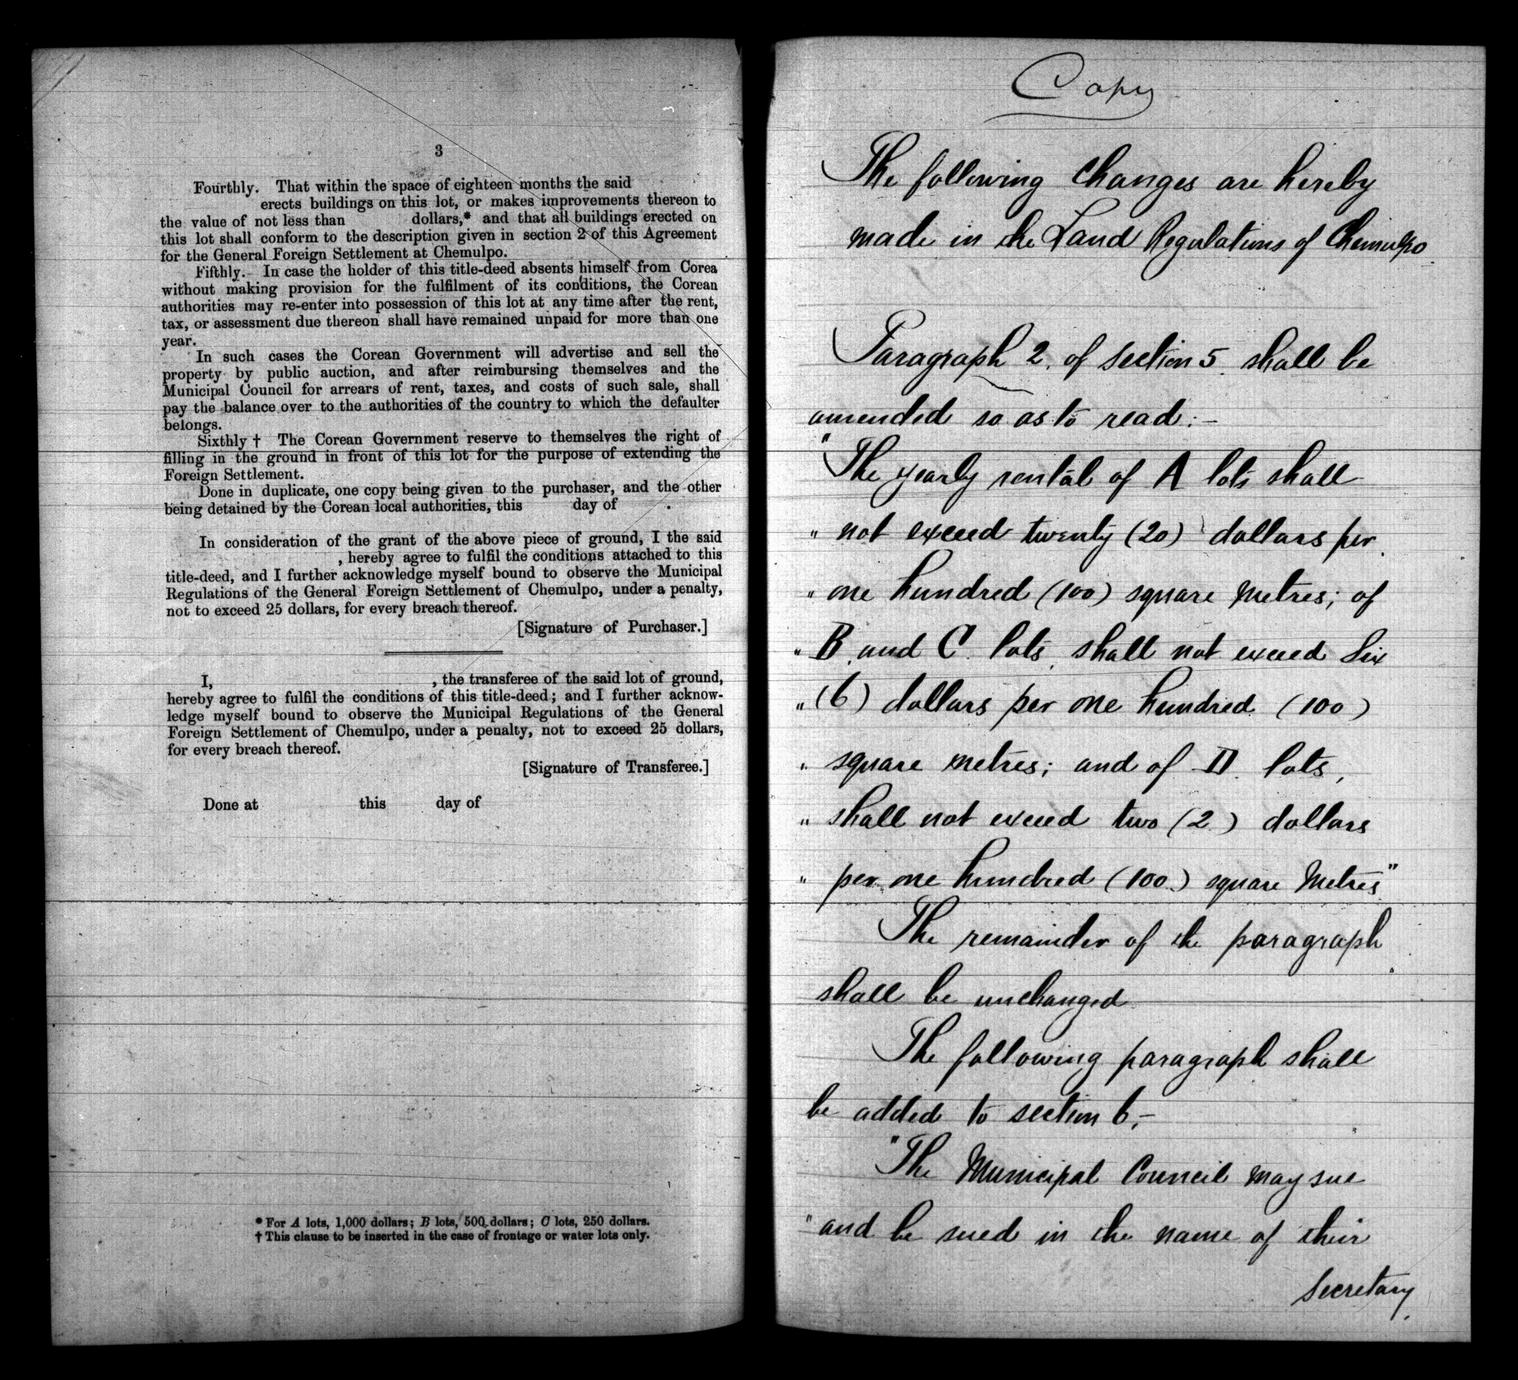 3
Fourthly. That within the space of eighteen months the said
erects buildings on this lot, or makes improvements thereon to
the value of not less than dollars,* and that all buildings erected on
this lot shall conform to the description given in section 2 of this Agreement
for the General Foreign Settlement at Chemulpo.
Fifthly.- In case the holder of this title-deed absents himself from Corea
without making provision for the fulfilment of its conditions, the Corean
authorities may re-enter into possession of this lot at any time after the rent,
tax, or assessment due thereon shall have remained unpaid for more than one
year.
In such cases the Corean Government will advertise and sell the
property by public auction, and after reimbursing themselves and the
Municipal Council for arrears of rent, taxes, and costs of such sale, shall
pay the balance over to the authorities of the country to which the defaulter
belongs.
Sixthly † The Corean Government reserve to themselves the right of
filling in the ground in front of this lot for the purpose of extending the
Foreign Settlement.
Done in duplicate, one copy being given to the purchaser, and the other
being detained by the Corean local authorities, this day of .
In consideration of the grant of the above piece of ground, I the said
, hereby agree to fulfil the conditions attached to this
title-deed, and I further acknowledge myself bound to observe the Municipal
Regulations of the General Foreign Settlement of Chemulpo, under a penalty,
not to exceed 25 dollars, for every breach thereof.
[Signature of Purchaser.]
I, , the transferee of the said lot of ground,
hereby agree to fulfil the conditions of this title-deed; and I further acknow-
ledge myself bound to observe the Municipal Regulations of the General
Foreign Settlement of Chemulpo, under a penalty, not to exceed 25 dollars,
for every breach thereof.
[Signature of Transferee.]
Done at this day of
* For A lots, 1,000 dollars; B lots, 500 dollars; C lots, 250 dollars.
† This clause to be inserted in the case of frontage or water lots only.
Copy
The following changes are hereby
made in the Land Regulations of Chemulpo.
Paragraph 2. of section 5. shall be
amended so as to read:-
"The yearly rental of A lots shall
" not exceed twenty (20) dollars per
" one hundred (100) square metres; of
" B. and C. lots shall not exceed six
" (6) dollars per one hundred (100)
" square metres; and of D. lots,
" shall not exceed two (2) dollars
" per one hundred (100) square metres"
The remainder of the paragraph
shall be unchanged.
The following paragraph shall
be added to section 6,-
"The Municipal Council may sue
" and be sued in the name of their
Secretary,